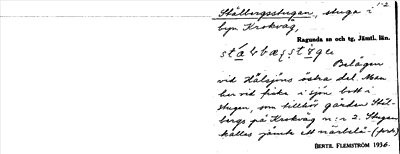 Stålbergsstugan, stuga i 1-2
byn Krokvåg,
Ragunda sn och tg, Jämtl. län.
Belägen
vid Hålsjöns östra del. Man
bor vid fiske i sjön bott i
stugan, som tillhör gården Stål-
bergs på Krokvåg n:r 2. Stugan
kallas jämte ett närbelä- (forts)
BERTIL FLEMSTRÖM 1936.